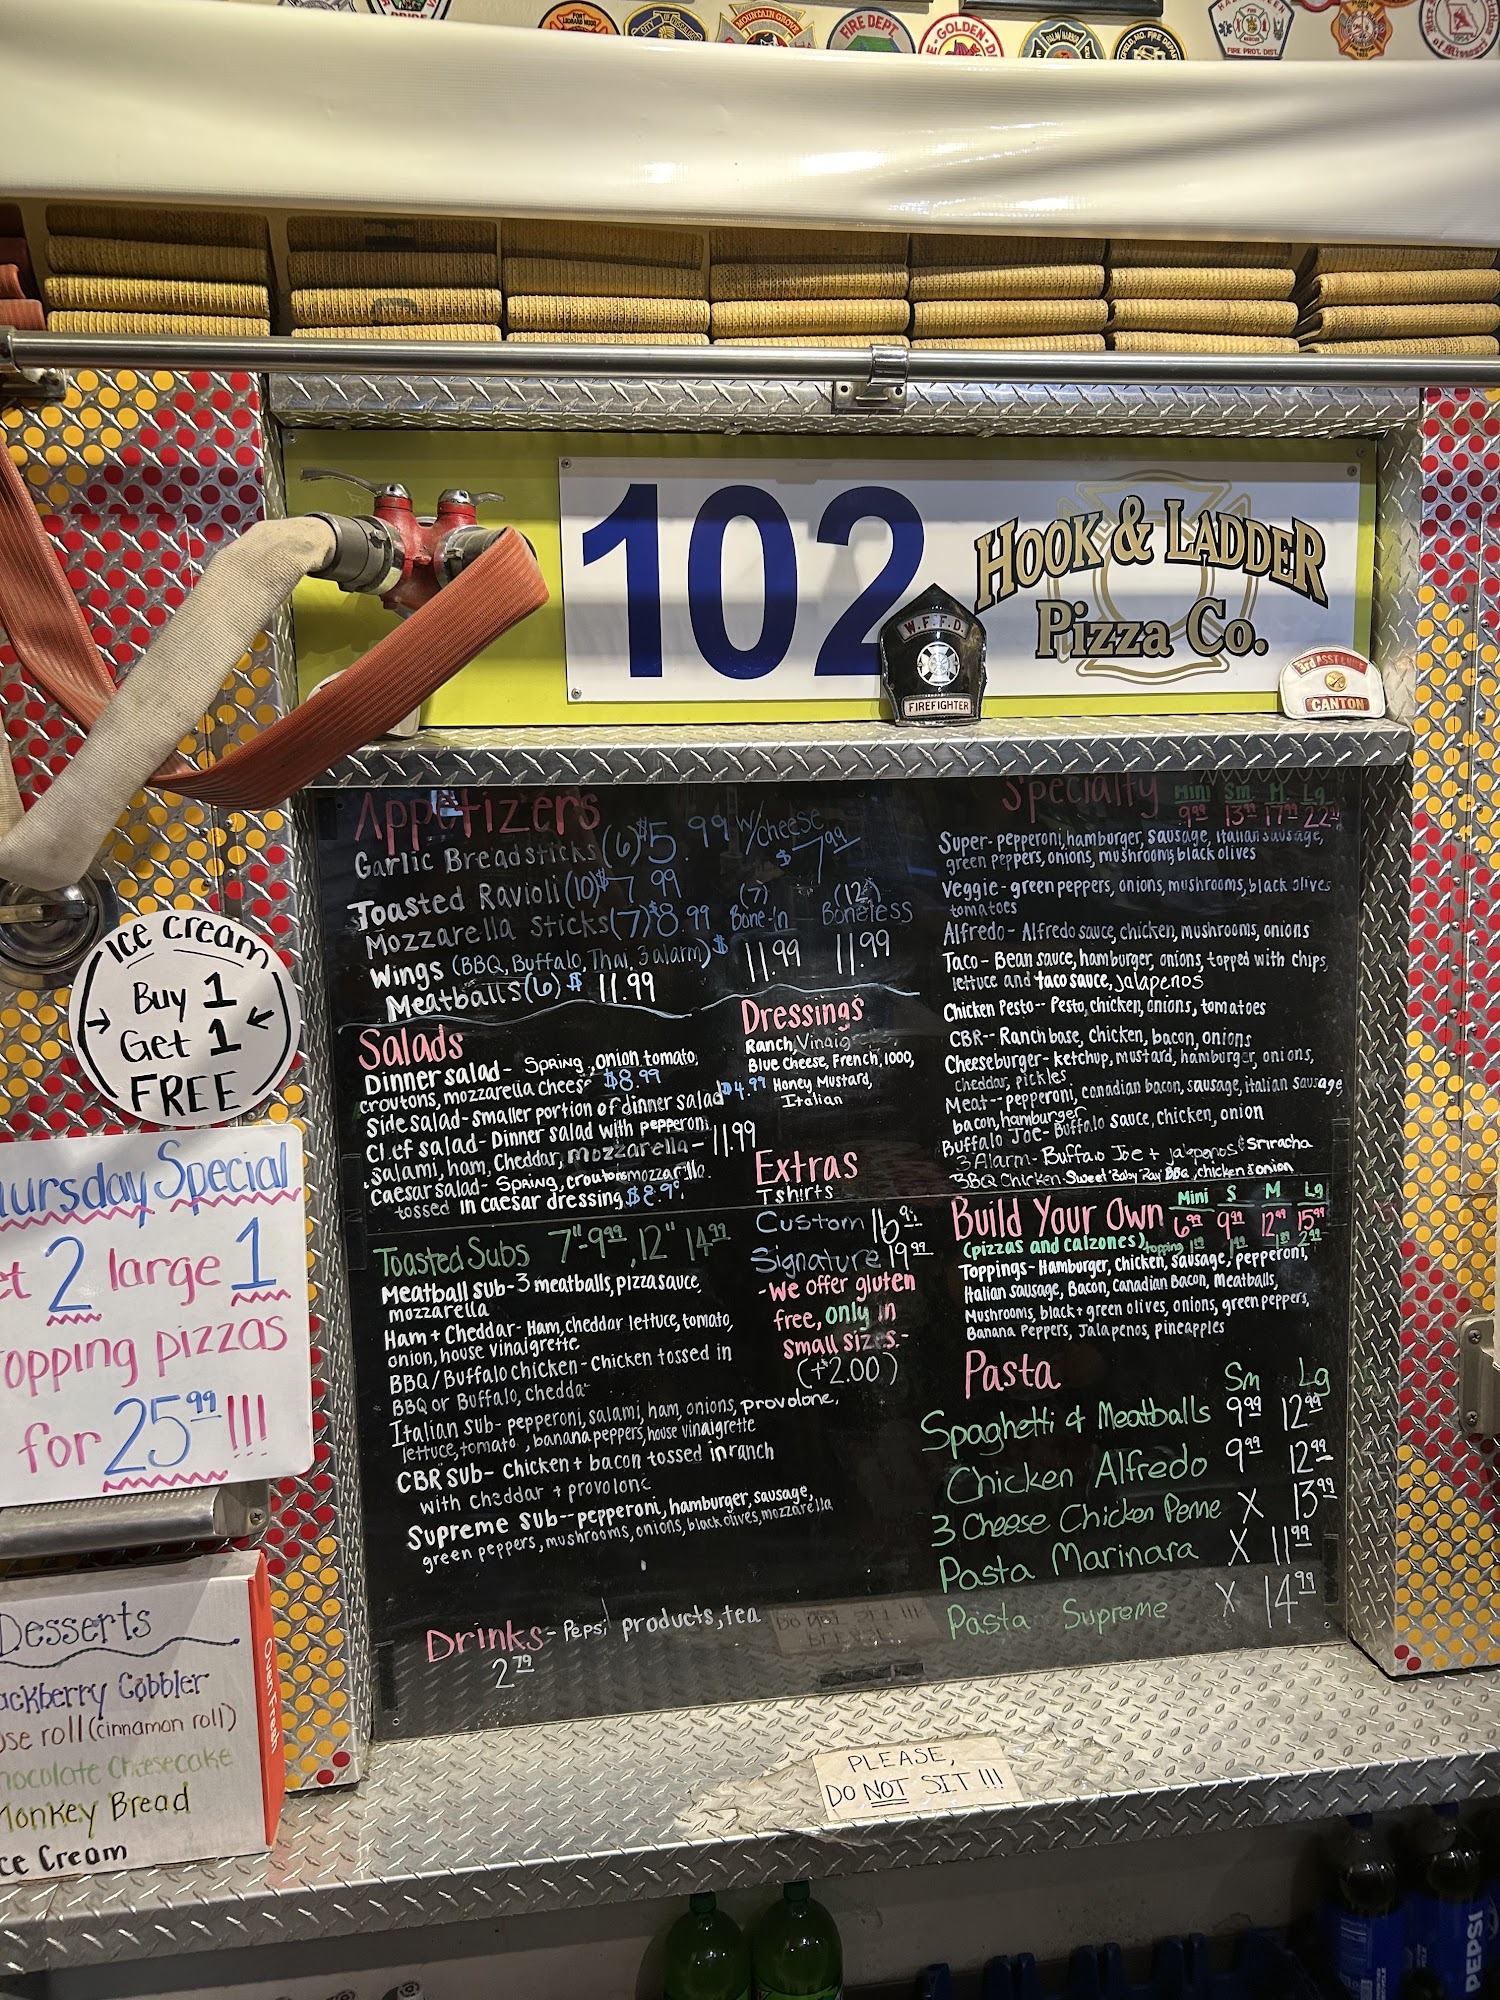 FIRE DEPT.
MOUNTAIN GROVE
GOLDEN
FIRE PROT. DIST.
102
HOOK & LADDER
Pizza Co.
W.F.F.D.
FIREFIGHTER
CANTON
Appetizers
Garlic Breadsticks (6) $5.99 w/cheese $7.99
Toasted Ravioli (10) $7.99
Mozzarella Sticks (7) $8.99
(7) Bone-In (12) Boneless
Wings (BBQ, Buffalo, Thai, 3 alarm) $ 11.99 11.99
Meatballs (6) $ 11.99
Salads
Dinner salad- Spring, onion tomato,
croutons, mozzarella cheese $8.99
Side salad- smaller portion of dinner salad $4.99
Cl ef salad- Dinner salad with pepperoni,
salami, ham, cheddar, mozzarella- 11.99
Caesar salad- Spring, croutons mozzarella.
tossed in caesar dressing $8.99
Dressings
Ranch, Vinaig
Blue Cheese, French, 1000,
Honey Mustard,
Italian
Extras
Tshirts
Custom 16.99
Signature 19.99
-We offer gluten
free, only in
small sizes.-
(+2.00)
Toasted Subs 7"-9.99, 12" 14.99
Meatball sub- 3 meatballs, pizza sauce,
mozzarella
Ham + Cheddar- Ham, cheddar lettuce, tomato,
onion, house vinaigrette
BBQ/Buffalo chicken- Chicken tossed in
BBQ or Buffalo, chedda
Italian sub- pepperoni, salami, ham, onions, provolone,
lettuce, tomato, banana peppers, house vinaigrette
CBR sub- chicken + bacon tossed in ranch
with cheddar + provolone
Supreme sub-- pepperoni, hamburger, sausage,
green peppers, mushrooms, onions, black olives, mozzarella
Drinks- Pepsi products, tea
2.79
Specialty Mini Sm. M. Lg
9.99 13.99 17.99 22.99
Super- pepperoni, hamburger, sausage, italian sausage,
green peppers, onions, mushrooms, black olives
Veggie- green peppers, onions, mushrooms, black olives
tomatoes
Alfredo- Alfredo sauce, chicken, mushrooms, onions
Taco- Bean sauce, hamburger, onions, topped with chips,
lettuce and taco sauce, jalapenos
Chicken Pesto-- Pesto, chicken, onions, tomatoes
CBR-- Ranch base, chicken, bacon, onions
Cheeseburger- ketchup, mustard, hamburger, onions,
cheddar, pickles
Meat-- pepperoni, canadian bacon, sausage, italian sausage,
bacon, hamburger
Buffalo Joe- Buffalo sauce, chicken, onion
3 Alarm- Buffalo Joe + jalapenos & Sriracha
BBQ Chicken- Sweet Baby Ray BBQ, chicken & onion
Build Your Own Mini S M Lg
6.99 9.99 12.99 15.99
(pizzas and calzones) topping
Toppings- Hamburger, chicken, sausage, pepperoni,
Italian sausage, Bacon, Canadian Bacon, Meatballs,
Mushrooms, black + green olives, onions, green peppers,
Banana Peppers, Jalapenos, pineapples
Pasta Sm Lg
Spaghetti & Meatballs 9.99 12.99
Chicken Alfredo 9.99 12.99
3 Cheese Chicken Penne X 13.99
Pasta Marinara X 11.99
Pasta Supreme X 14.99
Ice Cream
Buy 1
Get 1
FREE
ursday Special
et 2 large 1
opping pizzas
for 25.99!!!
Desserts
ackberry Cobbler
se roll (cinnamon roll)
hocolate Cheesecake
Monkey Bread
ce Cream
Oven Fresh
PLEASE,
DO NOT SIT!!!
PEPSI